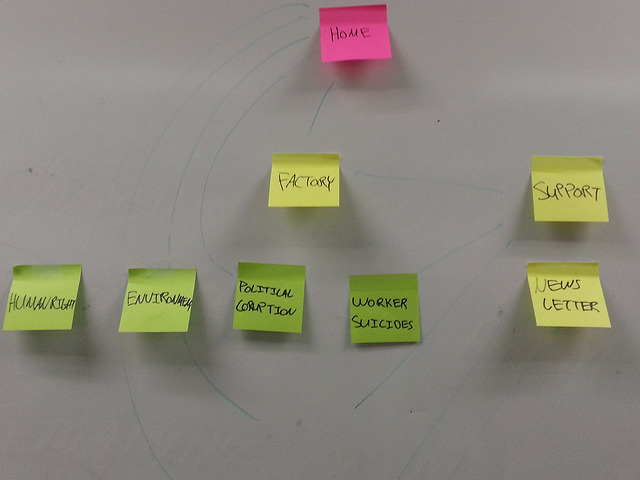 HOME
FACTORY
SUPPORT
HUMAN RIGHT
ENVIRONMEN
POLITICAL
CORUPTION
WORKER
SUICIDES
NEWS
LETTER